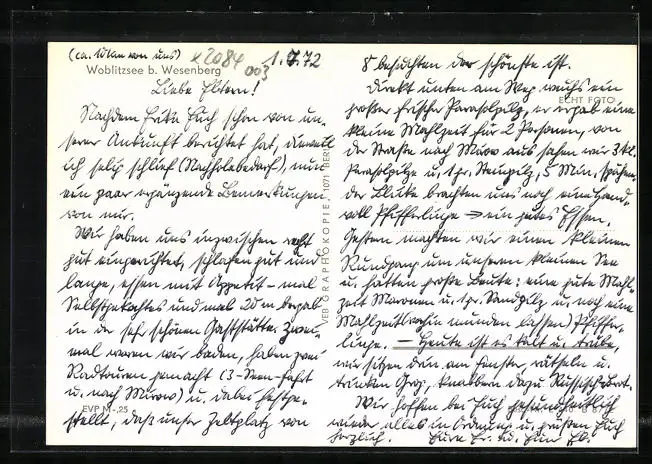 (ca. 10km von uns)
x2084
003
1.7.72
Woblitzsee b. Wesenberg
Liebe Eltern!
Nachdem Fritz Euch schon von un-
serer Ankunft berichtet hat, dieweil
ich selig schlief (Nachholebedarf), nun
ein paar ergänzende Bemerkungen
von mir.
Wir haben uns inzwischen recht
gut eingerichtet, schlafen gut und
lange, essen mit Appetit – mal
Selbstgekochtes und mal 20 m bergab
in der sehr schönen Gaststätte. Zwei-
mal waren wir baden, haben zwei
Radtouren gemacht (3-Seen-Fahrt
u. nach Mirow) u. dabei festge-
stellt, daß unser Zeltplatz von
EVP M -,25
VEB GRAPHOKOPIE, 1071 BERLIN
8 besuchten der schönste ist.
Direkt unten am Weg wuchs ein
großer frischer Parasolpilz, er ergab eine
ECHT FOTO
kleine Mahlzeit für 2 Personen, von
der Straße nach Mirow aus sahen wir 3 kl.
Parasolpilze u. 1 gr. Steinpilz, 5 Min. späten-
der Suche brachten uns noch eine Hand-
voll Pfifferlinge → ein gutes Essen.
Gestern machten wir einen kleinen
Rundgang um unseren kleinen See
u. hatten große Beute: eine gute Mahl-
zeit Maronen u. 1 gr. Sandpilz u. noch eine
Mahlzeit (weiter munden lassen) Pfiffer-
linge. – Heute ist es kalt u. trübe,
wir sitzen drin am Fenster, rätseln u.
trinken Grog, knabbern dazu Russischbrot.
Wir hoffen bei Euch gesundheitlich
wieder alles in Ordnung u. grüßen Euch
herzlich. Eure